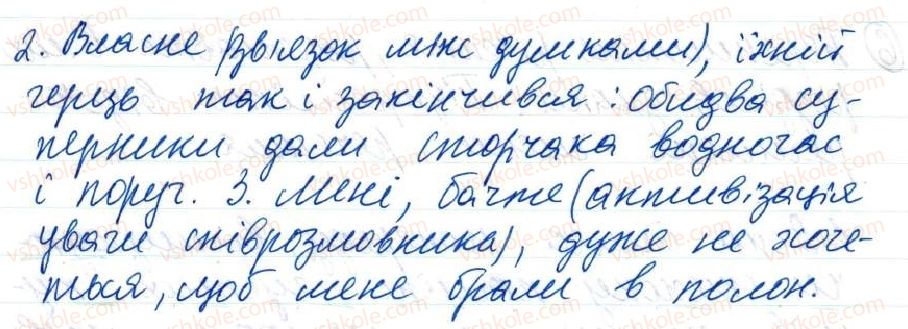 2. Власне (зв'язок між думками), їхній
герць так і закінчився: обидва су-
перники дали сторчака водночас
і поруч. 3. Мені, бачте (активізація
уваги співрозмовника), дуже не хоче-
ться, щоб мене брали в полон.